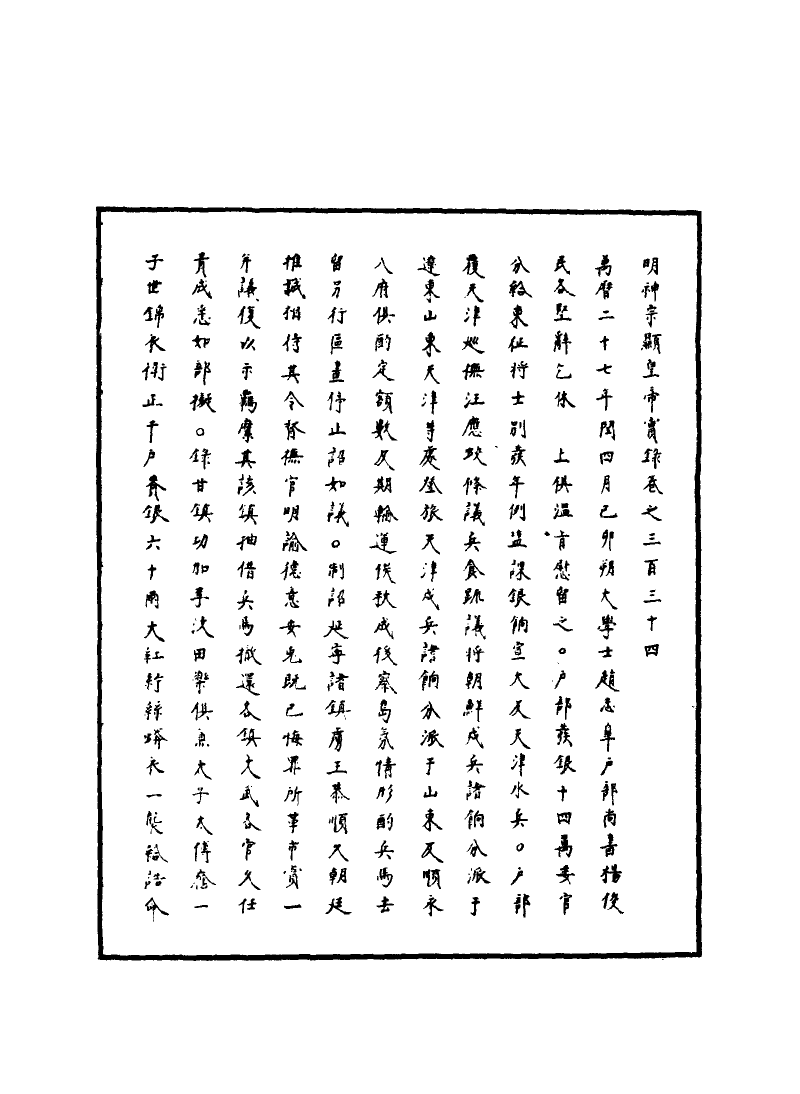 明神宗顯皇帝實錄卷之三百三十四
萬曆二十七年閏四月己卯朔大學士趙志皐戶部尚書楊俊
民各堅辭乞休　上俱溫旨慰留之○戶部發銀十四萬委官
分給東征將士別發年例鹽課銀餉宣大及天津水兵○戶部
覆天津廵撫汪應蛟條議兵食疏議將朝鮮戍兵諸餉分派于
遼東山東天津等處登旅天津戍兵諸餉分派于山東及順永
八府俱酌定額數及期輸運俟秋成後察島氛情形酌兵馬去
留另行區畫停止詔如議○制詔延寧諸鎮虜王恭順久朝廷
推誠撫待其令督撫官明諭德意安兔既已悔罪所革市賞一
并議復以示羈縻其該鎮抽借兵馬撤還各鎮文武各官久任
責成悉如部擬○錄甘鎮功加李汶田樂俱柬太子太傅廕一
子世錦衣衛正千戶賚銀六十兩大紅紵絲蟒衣一襲給誥命